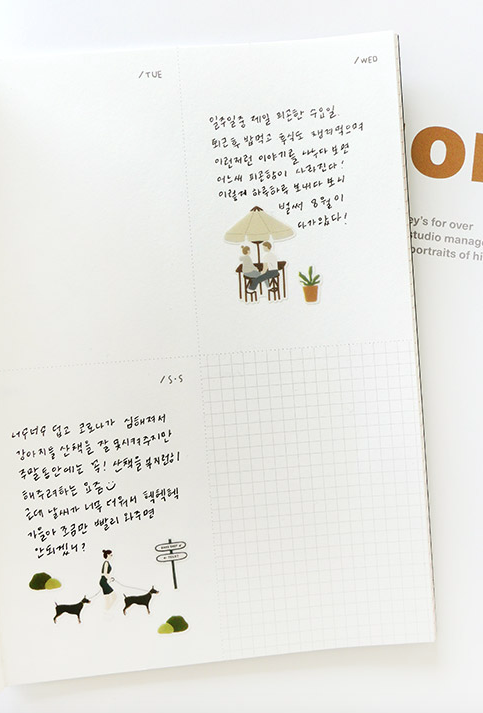 /TUE
/WED
일주일중 제일 피곤한 수요일.
퇴근후 밥먹고 후식도 챙겨먹으며
이런저런 이야기를 나누다 보면
어느새 피곤함이 사라진다!
이렇게 하루하루 보내다 보니
벌써 8월이
다가왔다!
/S·S
너무너무 덥고 코로나가 심해져서
강아지들 산책을 잘 못시켜주지만
주말동안에는 꼭! 산책을 부지런히
해주려하는 요즘
근데 날씨가 너무 더워서 헥헥헥
가을아 조금만 빨리 와주면
안되겠니?
or
ey's for over
studio manag
portraits of hi